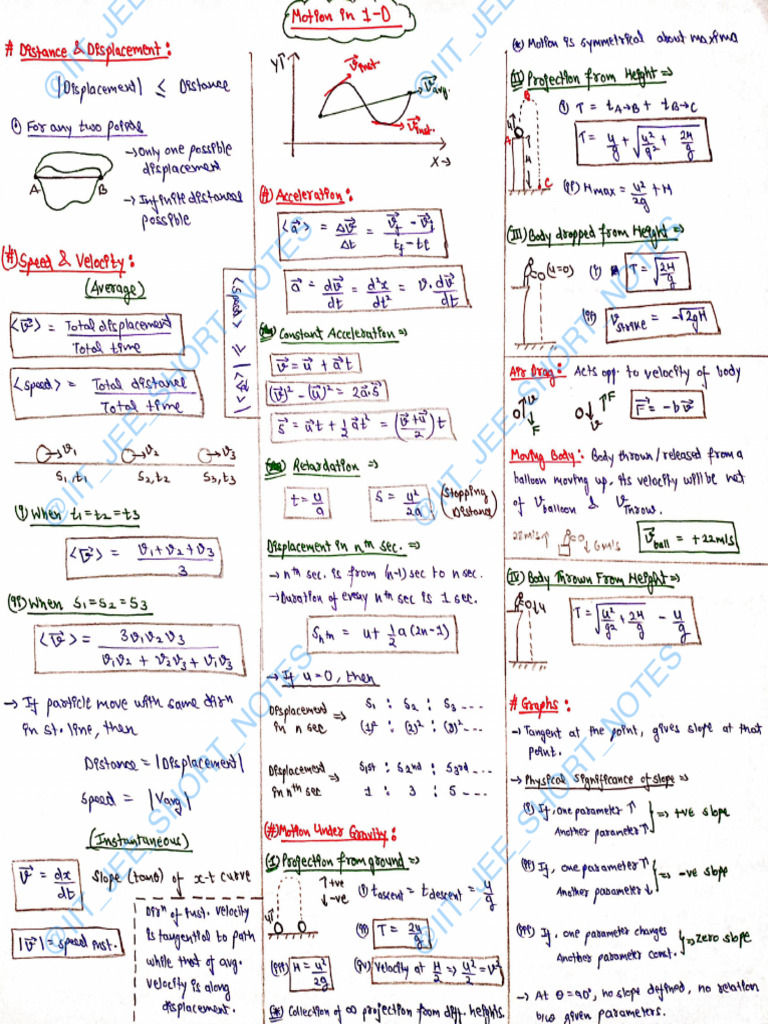 Motion in 1-D
# Distance & Displacement:
|Displacement| ≤ Distance
(•) For any two points
→ Only one possible
displacement
→ Infinite distances
possible
A B
(#) Speed & Velocity:
(Average)
<v⃗> = Total displacement / Total time
<speed> = Total distance / Total time
<speed> ≥ |<v⃗>|
v1 v2 v3
S1,t1 S2,t2 S3,t3
(i) When t1=t2=t3
<v⃗> = (v1+v2+v3)/3
(ii) When S1=S2=S3
<v⃗> = 3v1v2v3 / (v1v2 + v2v3 + v1v3)
→ If particle move with same dirⁿ
in st. line, then
Distance = |Displacement|
Speed = |Vavg|
(Instantaneous)
v⃗ = dx/dt
Slope (tanθ) of x-t curve
|v⃗| = speed inst.
Dirⁿ of inst. velocity
is tangential to path
while that of avg.
velocity is along
displacement.
Y↑
v⃗inst
v⃗avg.
v⃗inst
X→
(#) Acceleration:
<a⃗> = Δv⃗/Δt = (v⃗f − v⃗i)/(tf − ti)
a⃗ = dv⃗/dt = d²x/dt² = v.dv⃗/dt
Constant Acceleration ⇒
v⃗ = u⃗ + a⃗t
(v⃗)² − (u⃗)² = 2a⃗.s⃗
s⃗ = u⃗t + 1/2 a⃗t² = ((v⃗+u⃗)/2)t
Retardation ⇒
t = u/a
S = u²/2a
(Stopping
Distance)
Displacement in nth sec. ⇒
→ nth sec. is from (n-1) sec to n sec.
→ Duration of every nth sec is 1 sec.
Snth = u + 1/2 a(2n-1)
→ If u=0, then
Displacement
in n sec ⇒ S1 : S2 : S3 ....
(1)² : (2)² : (3)² ...
Displacement
in nth sec ⇒ S1st : S2nd : S3rd ...
1 : 3 : 5 ....
(#) Motion Under Gravity:
(I) Projection from ground ⇒
↑+ve
↓-ve
u↑
(i) tascent = tdescent = u/g
(ii) T = 2u/g
(iii) H = u²/2g
(iv) Velocity at H/2 ⇒ u²/2 = v²
(*) Collection of ∞ projection from diff. heights.
(*) Motion is symmetrical about maxima
(II) Projection from Height ⇒
u↑ A B C H
(i) T = tA→B + tB→C
T = u/g + √(u²/g² + 2H/g)
(ii) Hmax = u²/2g + H
(III) Body dropped from Height ⇒
(u=0)
(i) T = √(2H/g)
(ii) v⃗strike = −√2gH
Air Drag: Acts opp to velocity of body
v F F v
F⃗ = −bv⃗
Moving Body: Body thrown/released from a
balloon moving up, its velocity will be net
of Vballoon & Vthrow.
28m/s↑ ↓6m/s
v⃗ball = +22m/s
(IV) Body Thrown From Height ⇒
↓u
T = √(u²/g² + 2H/g) − u/g
# Graphs:
→ Tangent at the point, gives slope at that
point.
→ Physical Significance of slope ⇒
(i) If, one parameter ↑
Another parameter ↑ ⇒ +ve slope
(ii) If, one parameter ↑
Another parameter ↓ ⇒ -ve slope
(iii) If, one parameter changes
Another parameter const. ⇒ zero slope
→ At θ=90°, no slope defined, no relation
b/w given parameters.
@IIT_JEE_SHORT_NOTES
@IIT_JEE_SHORT_NOTES
@IIT_JEE_SHORT_NOTES
@IIT_JEE_SHORT_NOTES
@IIT_JEE_SHORT_NOTES
@IIT_JEE_SHORT_NOTES